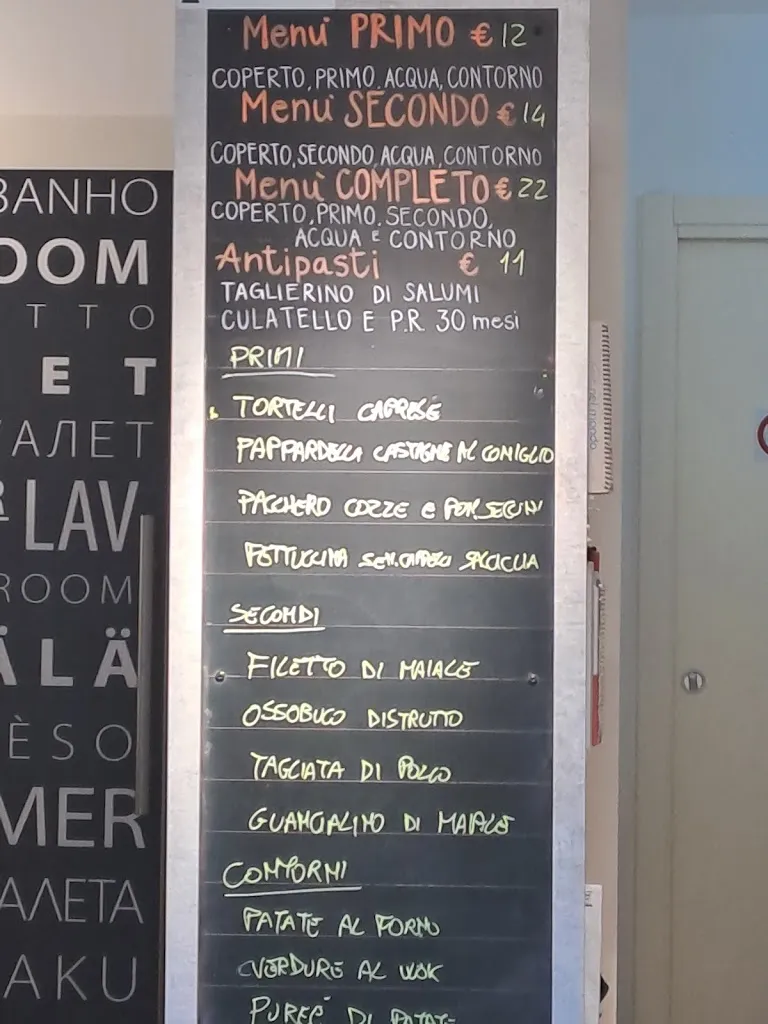 Menù PRIMO € 12
COPERTO, PRIMO, ACQUA, CONTORNO
Menù SECONDO € 14
COPERTO, SECONDO, ACQUA, CONTORNO
Menù COMPLETO € 22
COPERTO, PRIMO, SECONDO,
ACQUA E CONTORNO
Antipasti € 11
TAGLIERINO DI SALUMI
CULATELLO E P.R. 30 mesi
PRIMI
TORTELLI CAPRESE
PAPPARDELLA CASTAGNE AL CONIGLIO
PACHERO COZZE e
SALSICCIA
SECONDI
FILETTO DI MAIALE
OSSOBUCO DISTRUTTO
TAGLIATA DI POLLO
GUANCIALINO DI MAIALE
CONTORNI
PATATE AL FORNO
VERDURE AL WOK
PUREE' DI PATATE
BANHO
OOM
TTO
ET
АЛЕТ
LAV
ROOM
ÄLÄ
ÈSO
MER
ΑΛΕΤΑ
AKU